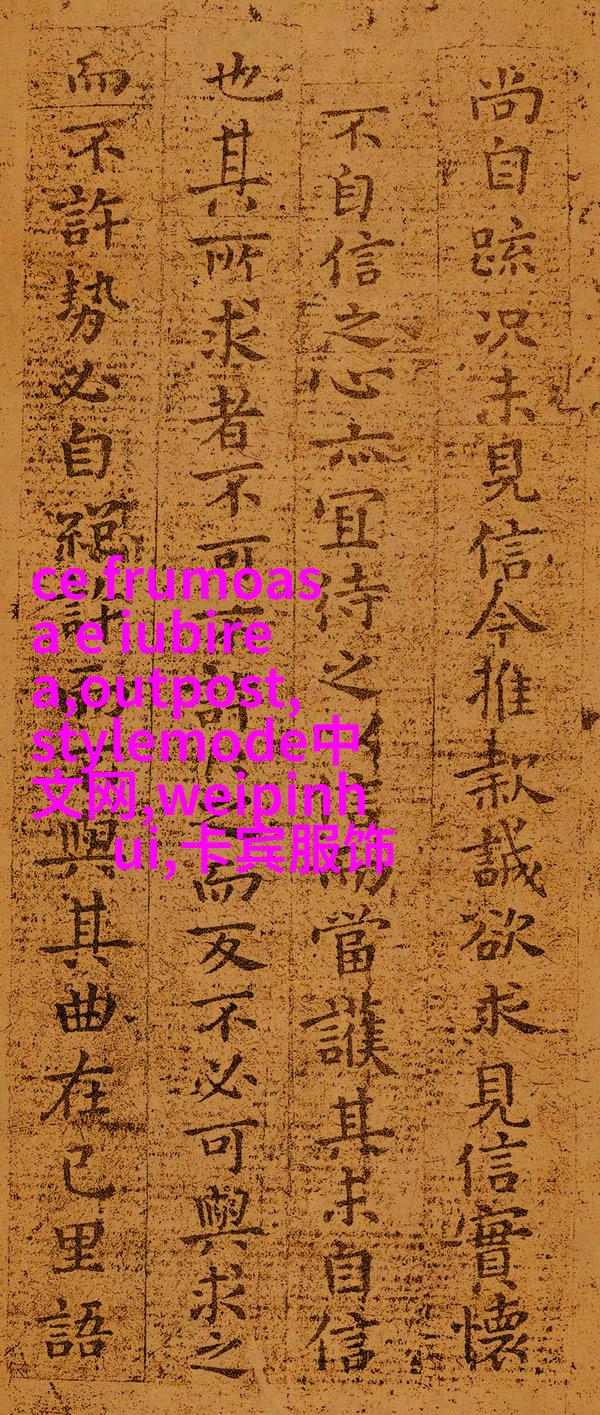 尚自踈况未見信今推款誠欲求見信實懷
不自信之心亦宜待之以信而當護其未自信
也其所求者不可不許許之而反不必可與求之
而不許勢必自絕許而不與其曲在己里語
ce frumoas
a e iubire
a,outpost,
stylemode中
文网,weipinh
ui,卡宾服饰